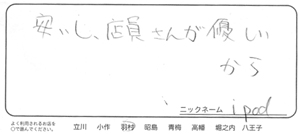 安いし、店員さんが優しい
から
ニックネーム ipod
よく利用されるお店を
○で選んでください。 立川 小作 羽村 昭島 青梅 高幡 堀之内 八王子